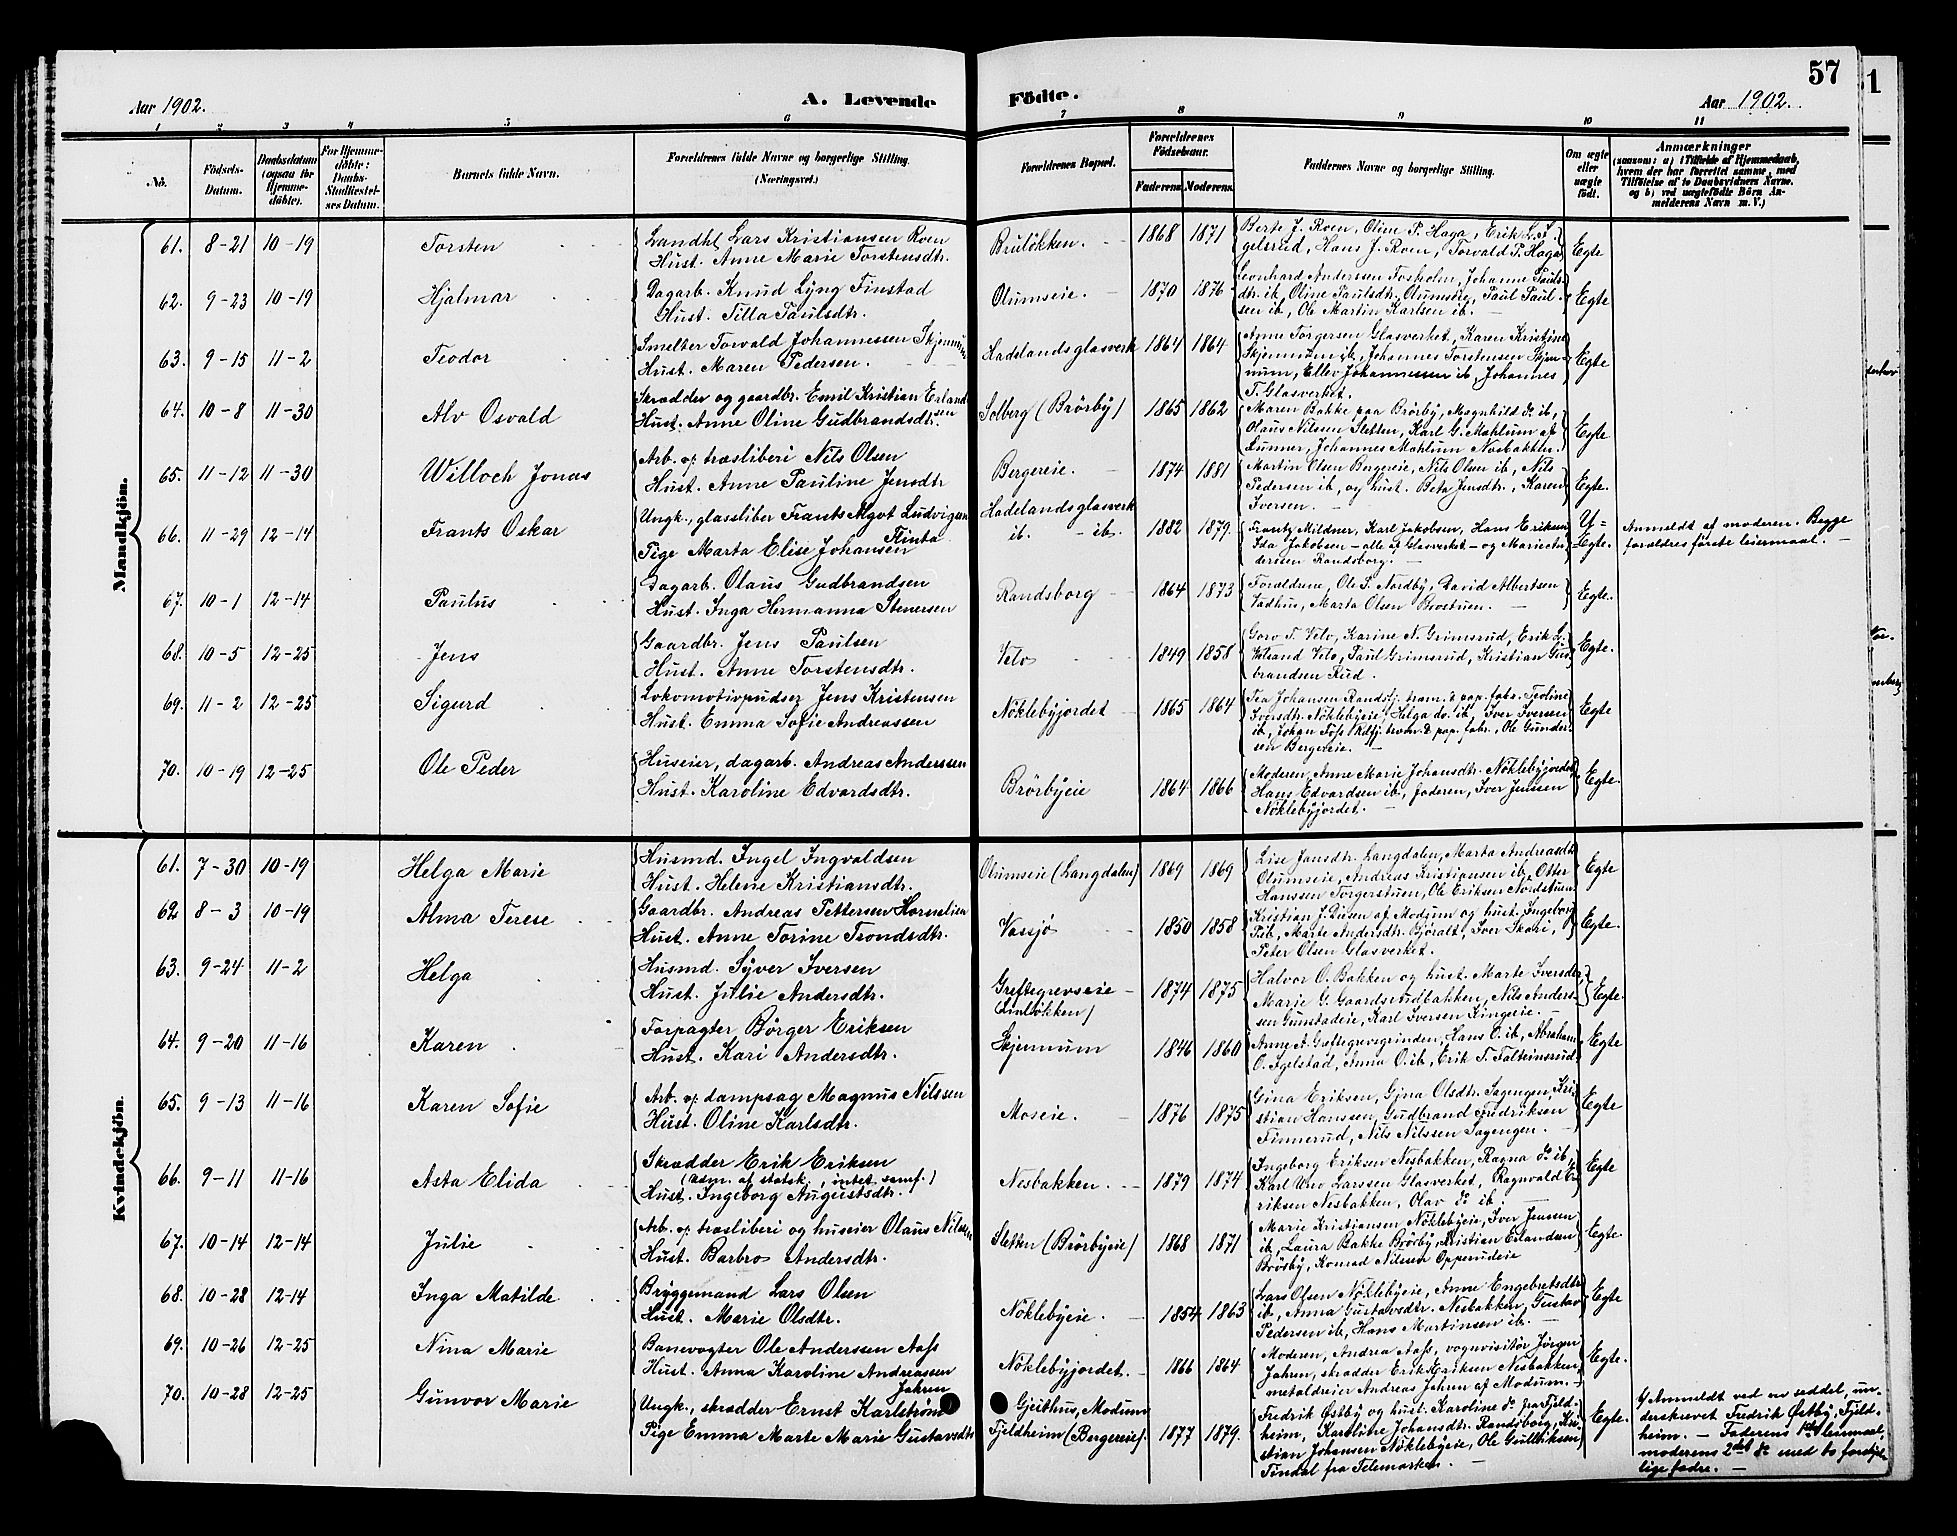 57
Aar 1902.
A. Levende Födte.
Aar 1902.
1 2 3 4 5 6 7 8 9 10 11
No.
Födsels-Datum.
Daabsdatum (ogsaa for Hjemmedöbte).
For Hjemmedöbte: Daabs-Stadfæstelses Datum.
Barnets fulde Navn.
Forældrenes fulde Navne og borgerlige Stilling. (Næringsvei.)
Forældrenes Bopæl.
Forældrenes Födselsaar.
Faderens. Moderens.
Faddernes Navne og borgerlige Stilling.
Om ægte eller uægte födt.
Anmærkninger
(saasom: a) i Tilfælde af Hjemmedaab, hvem der har forrettet samme, med Tilföielse af to Daabsvidners Navne, og b) ved uægtefödte Börn Anmelderens Navn m. V.)
Mandkjön.
61. 8-21 10-19 Torsten
Landhl. Lars Kristiansen Roen
Hust. Anne Marie Torstensdtr.
Bruløkken. 1868 1871
Berte J. Roen, Oline P. Haga, Erik L. I-
gelsrud, Hans J. Roen, Torvald P. Haga
Egte
62. 9-23 10-19 Hjalmar
Dagarb. Knud Lyng Finstad
Hust. Tilla Paulsdtr.
Olumseie. 1870 1876
Leonhard Andersen Fosholm, Johanne Pauls-
dtr. ib, Oline Paulsdtr. Olumseig, Paul Paul-
sen ib, Ole Martin Karlsen ib.
Egte
63. 9-15 11-2 Teodor
Smelter Torvald Johannessen Skjennum
Hust. Maren Pedersen.
Hadelandsglasverk 1864 1864
Anne Torgersen Glasverket, Karen Kristine
Skjennum ib, Johannes Torstensen Skjen-
num, Ellev Johannessen ib, Johannes
T. Glasverket.
Egte
64. 10-8 11-30 Alv Osvald
Skrædder og gaardbr. Emil Kristian Erland
sen
Hust. Anne Oline Gudbrandsdtr.
Solberg (Brörby) 1865 1862
Maren Bakke paa Brörby, Magnhild do ib,
Olaus Nilsen Sletten, Karl G. Mohlum af
Lunner, Johannes Mohlum Nesbakken.
Egte
65. 11-12 11-30 Willoch Jonas
Arb. v. træsliberi Nils Olsen
Hust. Anne Pauline Jensdtr
Bergereie. 1874 1881
Martin Olsen Bergereie, Nils Olsen ib, Nils
Pedersen ib, og hust. Beta Jensdtr., Karen
Iversen.
Egte.
66. 11-29 12-14 Frants Oskar
Ungk., glassliber Frants Agot Ludvigsen
Flinta
Pige Marta Elise Johansen
Hadelandsglasverk
ib. - ib. 1882 1879.
Frantz Mildner, Karl Jakobsen, Hans Eriksen
Ida Jakobsen - alle af Glasverket - og Marie An-
derssen Randsborg.
U=
Egte.
Anmeldt af moderen. Begge
forældres første leiermaal.
67. 10-1 12-14 Paulus
Dagarb. Olaus Gudbrandsen
Hust. Inga Hermanna Stenersen
Randsborg 1864 1873
Forældrene, Ole S. Nordby, David Albertsen
Vadhus, Marta Olsen Brostuen.
Egte.
68. 10-5 12-25 Jens
Gaardbr. Jens Paulsen
Hust. Anne Torstensdtr.
Velo 1849 1858
Goro T. Velo, Karine N. Grimsrud, Erik L.
Velsand Velo, Paul Grimsrud, Kristian Gud-
brandsen Rud.
Egte.
69. 11-2 12-25 Sigurd
Lokomotivpudser Jens Kristensen
Hust. Emma Sofie Andreassen
Nöklebyjordet 1865 1864
Tea Johansen Randsfj. træm. & pap. fabr. Teoline
Iversdtr. Nöklebyeie, Helga do. ib, Iver Iversen
ib, Johan Fosse Rdsfj. trem. & pap. fabr., Ole Gunder-
sen Bergereie.
Egte
70. 10-19 12-25 Ole Peder
Huseier, dagarb. Andreas Anderssen
Hust. Karoline Edvardsdtr.
Brörbyeie 1864 1866
Moderen, Anne Marie Johansdtr. Nöklebyjordet,
Hans Edvardsen ib, faderen, Iver Jenssen
Nöklebyjordet.
Egte.
Kvindekjön.
61. 7-30 10-19 Helga Marie
Husmd. Ingel Ingvaldsen
Hust. Helene Kristiansdtr.
Olumseie (Langdalen) 1869 1869
Lise Jansdtr. Langdalen, Marta Andreasdtr
Olumseie, Andreas Kristiansen ib, Otter
Hanssen Torgerstuen, Ole Eriksen Nordstuen
Egte
62 8-3 10-19 Alma Terese
Gaardbr. Andreas Pettersen Hornslien
Hust. Anne Torine Trondsdtr.
Vassjø 1850 1858
Kristian J. Diisen af Modum og hust. Ingeborg
P. ib, Marte Andersdtr. Björalt, Iver Skari,
Peter Olsen Glasverket.
Egte.
63. 9-24 11-2 Helga
Husmd. Syver Iversen
Hust. Julie Andersdtr.
Greftegrevseie
Linløkken) 1874 1875
Halvor O. Bakken og hust. Marte Iversdtr,
Marie G. Gaardsrudbakken, Nils Anders-
sen Gunstadeie, Karl Iversen Kingeeie.
Egte.
64. 9-20 11-16 Karen
Forpagter Börger Eriksen
Hust. Kari Andersdtr.
Skjennum 1846 1860
Anne A. Greftegrevsgrinden, Hans O. ib, Abraham
O. Igelstad, Anna O. ib, Erik T. Falkeinsrud
Egte
65. 9-13 11-16 Karen Sofie
Arb. v. dampsag Magnus Nilssen
Hust. Oline Karlsdtr.
Moseie. 1876 1875
Gina Eriksen, Gina Olsdtr. Sagengen, Kri-
stian Hanssen, Gudbrand Fredriksen
Finnerud, Nils Nilssen Sagengen.
Egte
66. 9-11 11-16 Asta Elida
Skrædder Erik Eriksen
(usm. af statsk., intet samf.)
Hust. Ingeborg Augustsdtr.
Nesbakken. 1879 1874
Ingeborg Eriksen Nesbakken, Ragna do ib,
Karl Uno Larssen Glasverket, Ragnvald E-
riksen Nesbakken, Olav do ib.
Egte
67. 10-14 12-14 Julie
Arb. v. træsliberi og huseier Olaus Nilssen
Hust. Barbro Andersdtr.
Sletten (Brörbyeie) 1868 1871
Marie Kristiansen Nöklebyeie, Iver Jensen
ib, Laura Bakke Brörby, Kristian Erlandsen
Brörby, Konrad Nilsen Opperudeie
Egte.
68. 10-28 12-14 Inga Matilde
Bryggemand Lars Olsen
Hust. Marie Olsdtr.
Nöklebyeie. 1854 1863
Lars Olsen Nöklebyeie, Anne Engebretsdtr.
ib, Anna Gustavsdtr. Nesbakken, Gustav
Pedersen ib, Hans Martinsen ib.
Egte
69. 10-26 12-25 Nina Marie
Banevogter Ole Anderssen Aass
Hust. Anna Karoline Andreassen
Jahren
Nöklebyjordet. 1866 1864
Moderen, Andrea Aass, vognvisitør Jörgen
Jahren, skrædder Erik Eriksen Nesbakken
metaldreier Andreas Jahren af Modum.
Egte.
70. 10-28 12-25 Gunvor Marie
Ungk., skrædder Ernst Karlström
Pige Emma Marte Marie Gustavsdtr
Gjeithus, Modum
Fjeldheim (Bergereie). 1877 1879.
Fredrik Østby og hust. Karoline do paa Fjeld-
heim, Karoline Johansdtr. Randsborg, Kri-
stian Johansen Nöklebyeie, Ole Gulliksen
Tindal fra Telemarken.
Egte.
Anmeldt ved en seddel, un-
derskrevet Fredrik Østby, Fjeld-
heim. - Faderens 1ste leiermaal,
moderens 2det do med to forskjel-
lige fædre.